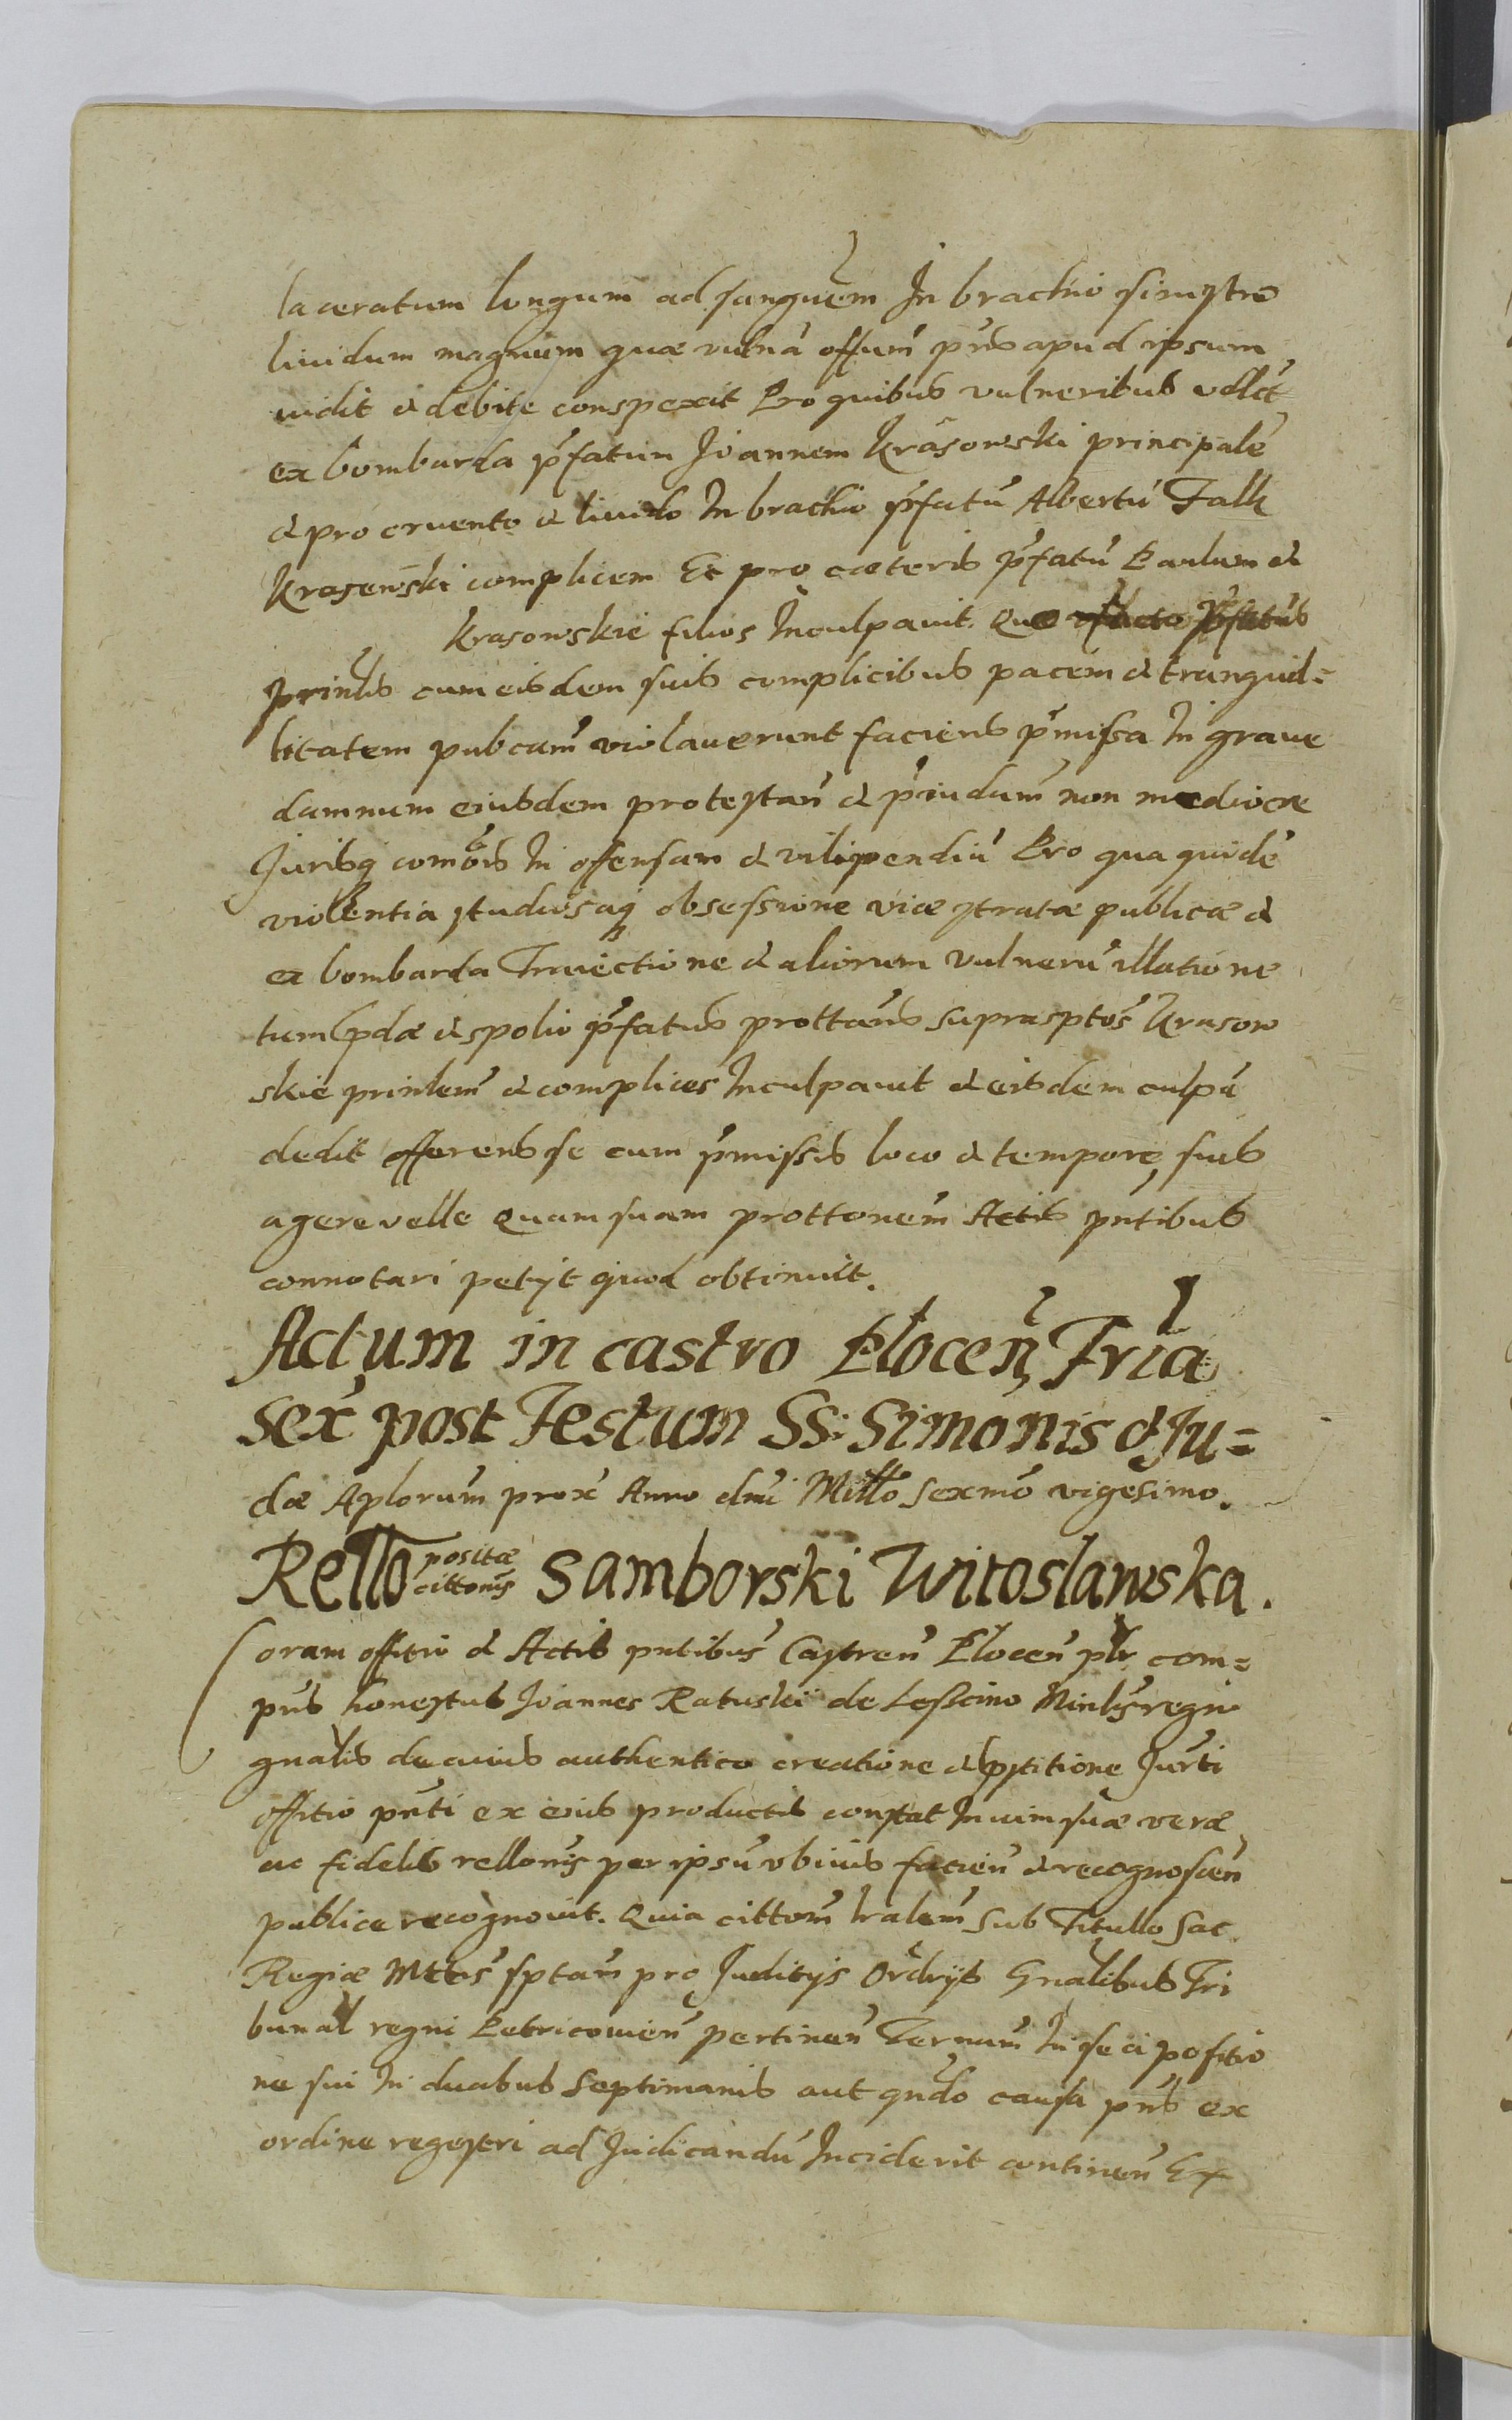 laceratum longum ad sanguem In brachio sinistro
liuidum magnum quæ vulna offum pns apud ipsum
vidit & debite conspexit Pro quibus vulneribus
ex bombarda pfatum Joannem Krasowski principale
& pro cruento & liuido In brachio pfatu Albertu Falk
Krasewski complicem Et pro cæteris pfatu Paulum &
Krasowskie filios Inculpauit. Quo
prinlis cum eisdem suis complicibus pacem & tranquil=
litatem pubcam violauerunt faciens pmissa In graue
damnum eiusdem protestan & piudum non mediocre
Jurisq comois In offensam & vilipendiu Pro qua quide
violentia studiosaq obsessione viæ stratæ publicæ &
ex bombarda Traiectione & aliorum vulneru illatione
tum pdæ & spolio pfatus prottans suprasptos Krasow
skie prinlem & complices Inculpauit & eisdem culpa
dedit offerens se cum pmissis loco & tempore suis
agere velle Quam suam prottonem Actis pntibus
connotari petyt quod obtinuit.
Actum in castro Plocen Fria
Sex post Festum SS: Simonis & Ju=
dæ Aplorum prox Anno dni Millo Sexmo vigesimo.
Rello positæ cittonis Samborski Witoslawska.
Coram offitio & Actis pntibus Castren Plocen plr com=
pns honestus Joannes Ratuskii de Lescino Minlis regni
gnalis de cuius authentico creatione & pstitione Jurti
offitio pnti ex eius productis constat In vim suæ veræ
ac fidelis rellonis per ipsu vbiuis facien & recognoscen
publice recognouit. Quia cittom lralem sub Titullo Sac.
Regiæ Mttis sptam pro Juditijs Ordrijs Gnalibus Tri
bunal regni Petricouien pertinen Fernum In se a positio
ne sui In duabus Septimanis aut qndo causa pns ex
ordine regestri ad Judicandu Inciderit continen Ex